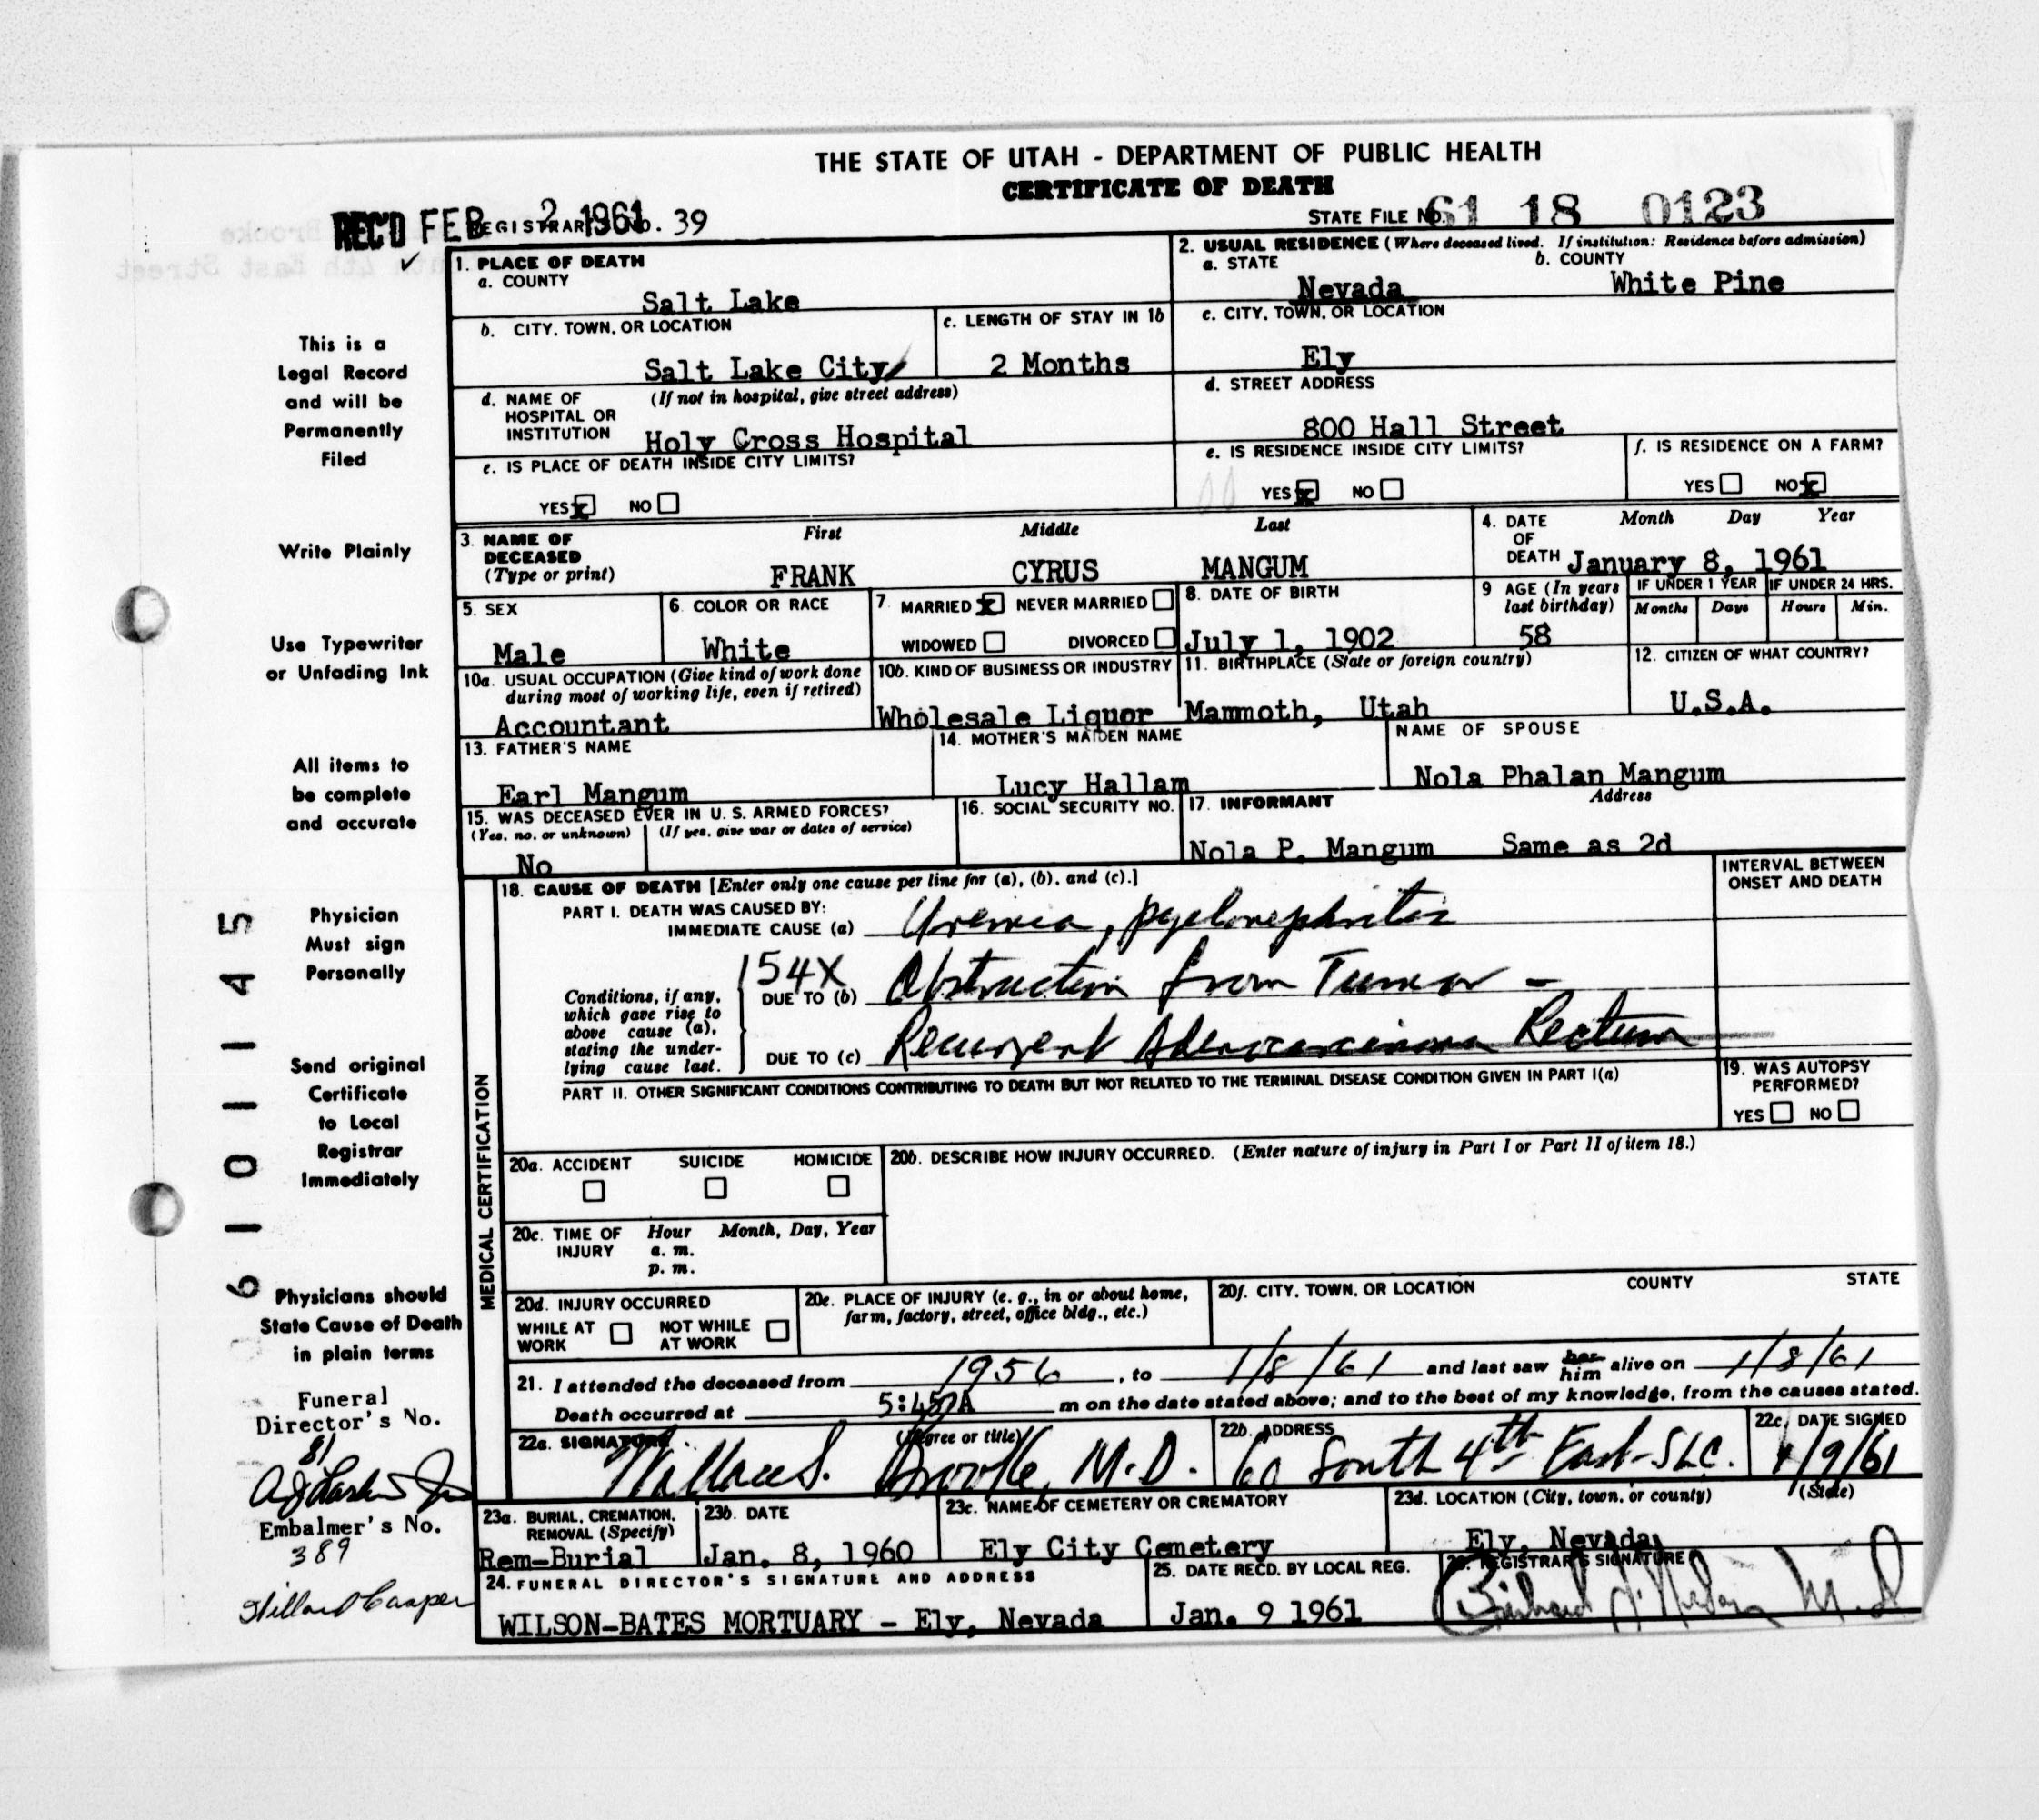 THE STATE OF UTAH - DEPARTMENT OF PUBLIC HEALTH
CERTIFICATE OF DEATH
REC'D FEB 2 1961 REGISTRAR'S NO. 39
STATE FILE NO. 61 18 0123
1. PLACE OF DEATH
a. COUNTY
Salt Lake
2. USUAL RESIDENCE (Where deceased lived. If institution: Residence before admission)
a. STATE b. COUNTY
Nevada White Pine
b. CITY, TOWN, OR LOCATION
Salt Lake City
c. LENGTH OF STAY IN 1b
2 Months
c. CITY, TOWN, OR LOCATION
Ely
d. NAME OF HOSPITAL OR INSTITUTION (If not in hospital, give street address)
Holy Cross Hospital
d. STREET ADDRESS
800 Hall Street
e. IS PLACE OF DEATH INSIDE CITY LIMITS?
YES x NO
e. IS RESIDENCE INSIDE CITY LIMITS?
YES x NO
f. IS RESIDENCE ON A FARM?
YES NO x
3. NAME OF DECEASED (Type or print)
First Middle Last
FRANK CYRUS MANGUM
4. DATE OF DEATH
Month Day Year
January 8, 1961
5. SEX
Male
6. COLOR OR RACE
White
7. MARRIED x NEVER MARRIED
WIDOWED DIVORCED
8. DATE OF BIRTH
July 1, 1902
9 AGE (In years last birthday)
58
IF UNDER 1 YEAR IF UNDER 24 HRS.
Months Days Hours Min.
10a. USUAL OCCUPATION (Give kind of work done during most of working life, even if retired)
Accountant
10b. KIND OF BUSINESS OR INDUSTRY
Wholesale Liquor
11. BIRTHPLACE (State or foreign country)
Mammoth, Utah
12. CITIZEN OF WHAT COUNTRY?
U.S.A.
13. FATHER'S NAME
Earl Mangum
14. MOTHER'S MAIDEN NAME
Lucy Hallam
NAME OF SPOUSE
Nola Phalan Mangum
15. WAS DECEASED EVER IN U. S. ARMED FORCES?
(Yes, no, or unknown) (If yes, give war or dates of service)
No
16. SOCIAL SECURITY NO.
17. INFORMANT Address
Nola P. Mangum Same as 2d
MEDICAL CERTIFICATION
18. CAUSE OF DEATH [Enter only one cause per line for (a), (b), and (c).]
INTERVAL BETWEEN ONSET AND DEATH
PART I. DEATH WAS CAUSED BY:
IMMEDIATE CAUSE (a) Uremia, pyelonephritis
154X
Conditions, if any, which gave rise to above cause (a), stating the underlying cause last.
DUE TO (b) Obstruction from Tumor -
DUE TO (c) Recurrent Adenocarcinoma Rectum
PART II. OTHER SIGNIFICANT CONDITIONS CONTRIBUTING TO DEATH BUT NOT RELATED TO THE TERMINAL DISEASE CONDITION GIVEN IN PART I(a)
19. WAS AUTOPSY PERFORMED?
YES NO
20a. ACCIDENT SUICIDE HOMICIDE
20b. DESCRIBE HOW INJURY OCCURRED. (Enter nature of injury in Part I or Part II of item 18.)
20c. TIME OF INJURY Hour Month, Day, Year
a. m.
p. m.
20d. INJURY OCCURRED
WHILE AT WORK NOT WHILE AT WORK
20e. PLACE OF INJURY (e. g., in or about home, farm, factory, street, office bldg., etc.)
20f. CITY, TOWN, OR LOCATION COUNTY STATE
21. I attended the deceased from 1956, to 1/8/61 and last saw her him alive on 1/8/61
Death occurred at 5:45A m on the date stated above; and to the best of my knowledge, from the causes stated.
22a. SIGNATURE (Degree or title)
Wallace S. Brooke, M.D.
22b. ADDRESS
60 South 4th East-SLC.
22c. DATE SIGNED
1/9/61
23a. BURIAL, CREMATION, REMOVAL (Specify)
Rem-Burial
23b. DATE
Jan. 8, 1960
23c. NAME OF CEMETERY OR CREMATORY
Ely City Cemetery
23d. LOCATION (City, town, or county) (State)
Ely, Nevada
24. FUNERAL DIRECTOR'S SIGNATURE AND ADDRESS
WILSON-BATES MORTUARY - Ely, Nevada
25. DATE RECD. BY LOCAL REG.
Jan. 9 1961
26. REGISTRAR'S SIGNATURE
This is a
Legal Record
and will be
Permanently
Filed
Write Plainly
Use Typewriter
or Unfading Ink
All items to
be complete
and accurate
Physician
Must sign
Personally
Send original
Certificate
to Local
Registrar
Immediately
Physicians should
State Cause of Death
in plain terms
6101145
Funeral
Director's No.
81
Embalmer's No.
389